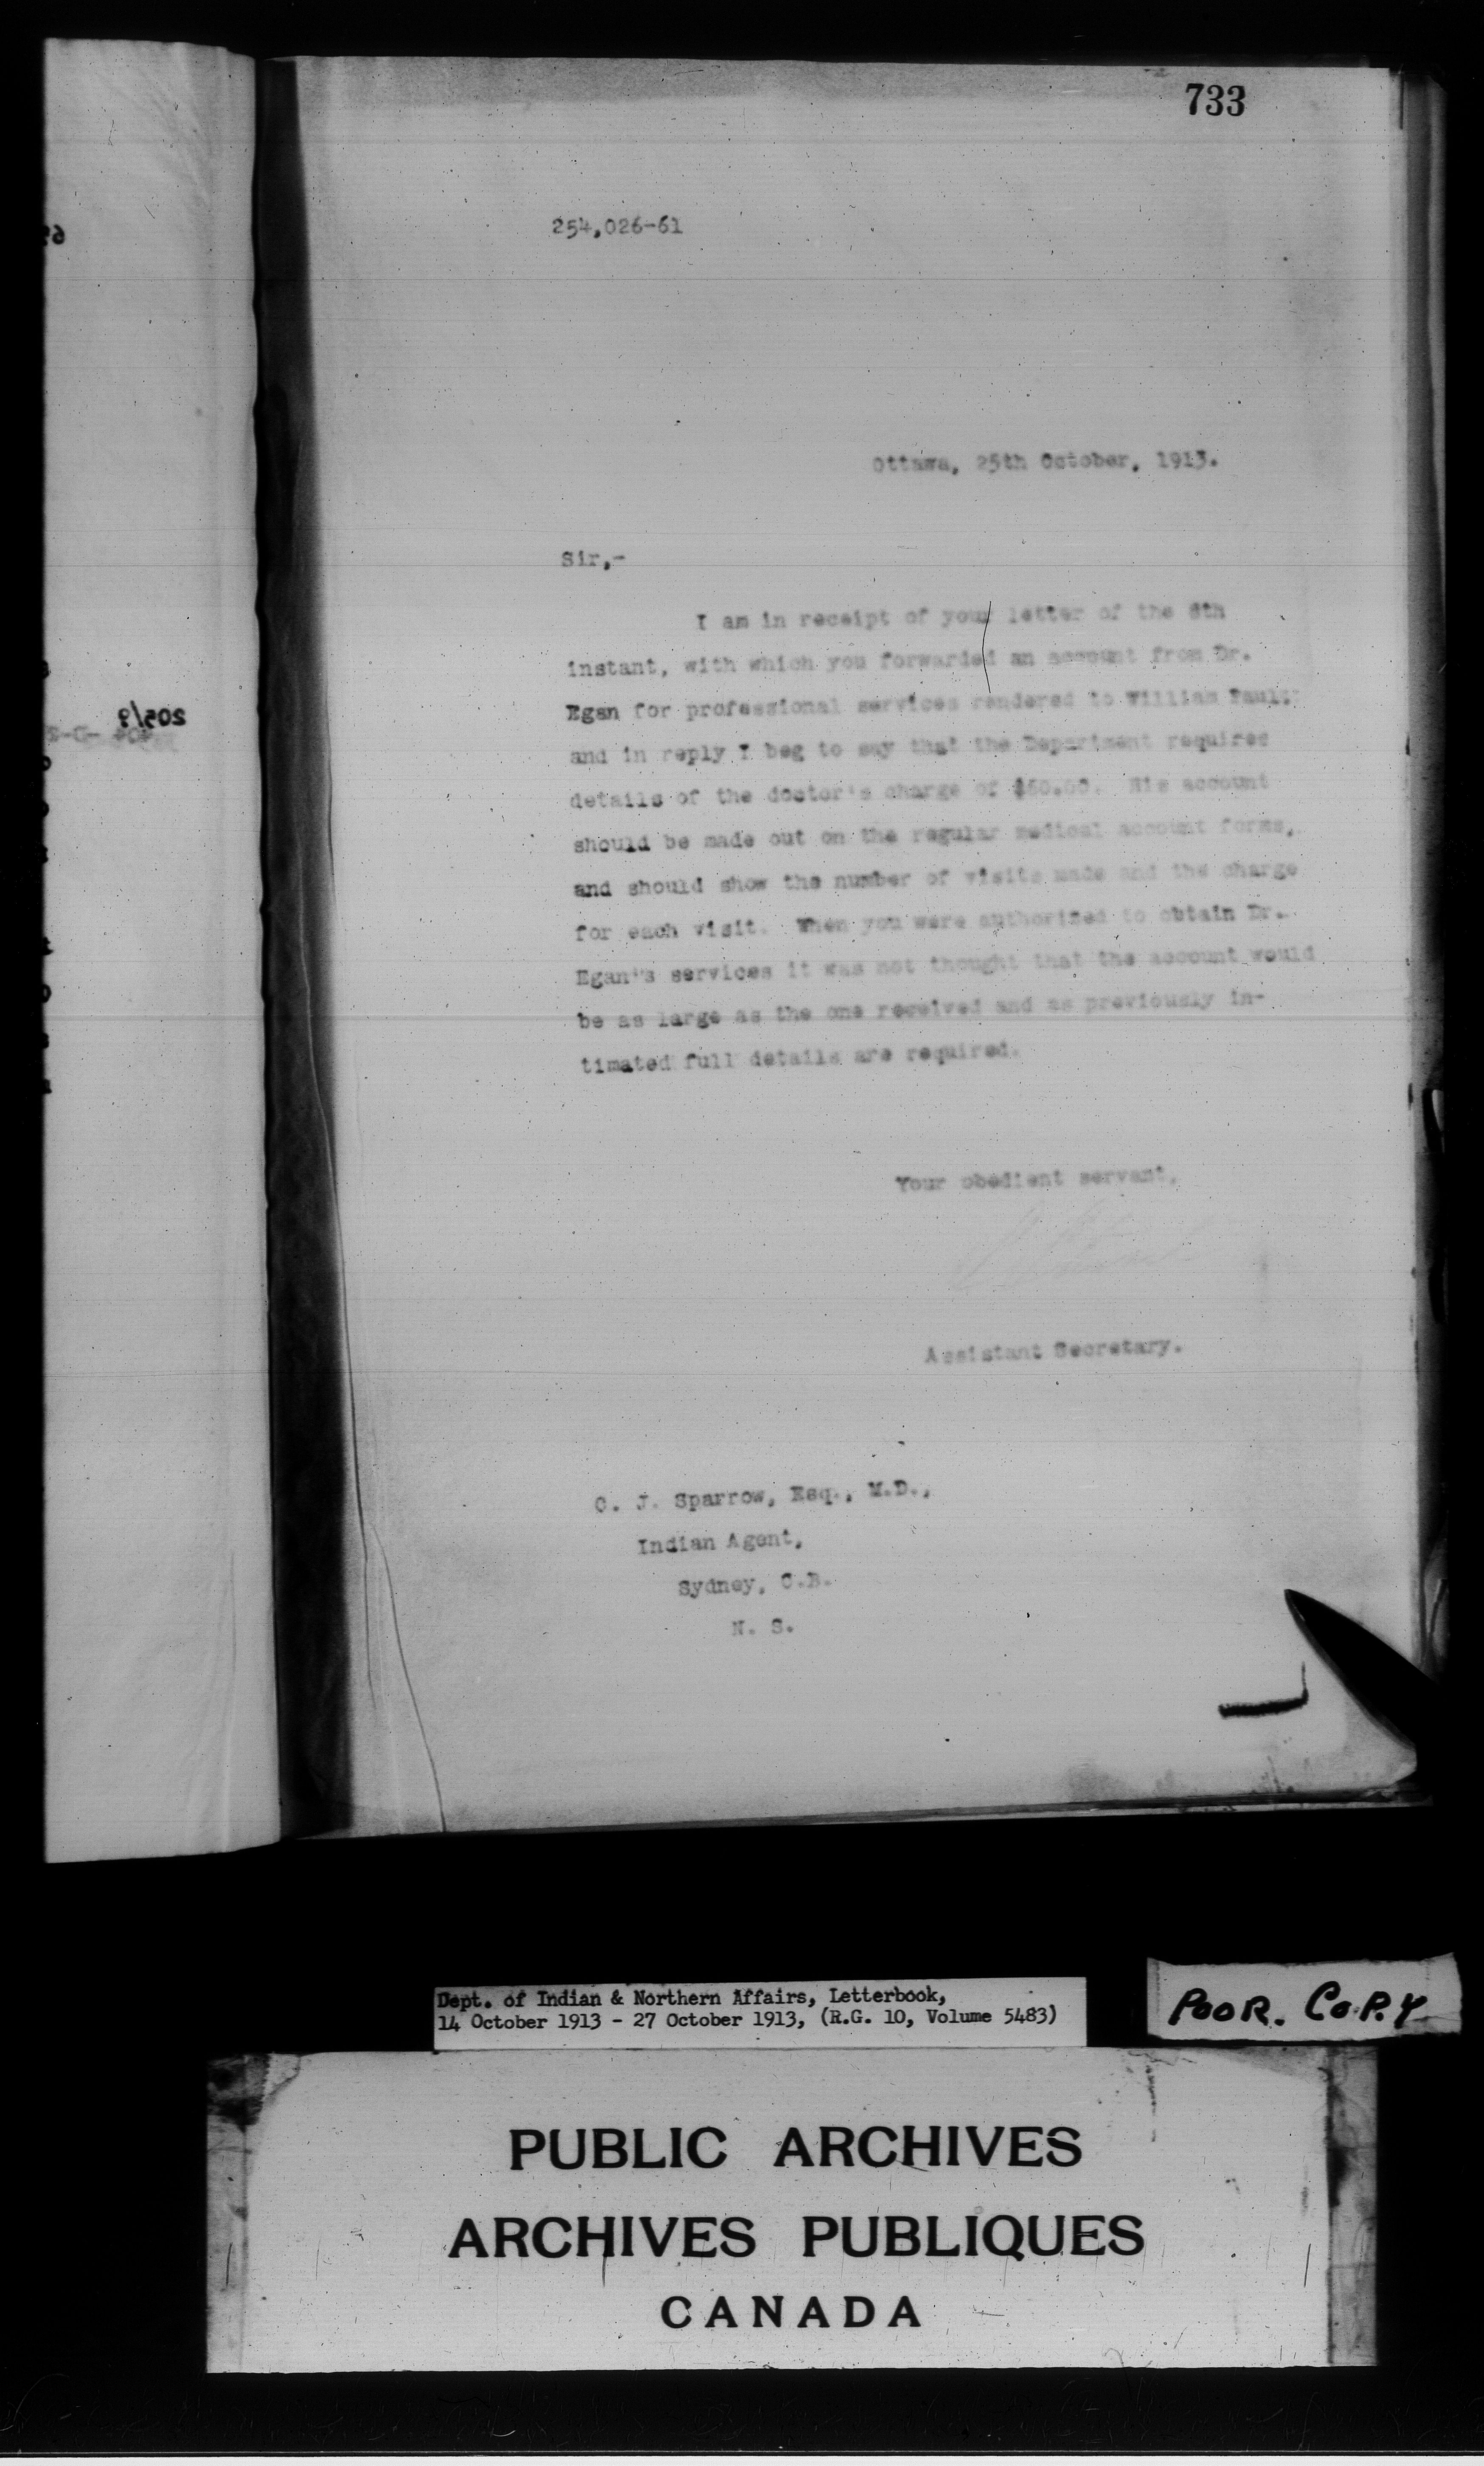 733
254,026-61
Ottawa, 25th October, 1913.
Sir,-
I am in receipt of your letter of the 8th
instant, with which you forwarded an account from Dr.
Egan for professional services rendered to William Paul,
and in reply I beg to say that the Department requires
details of the doctor's charge of $60.00. His account
should be made out on the regular medical account forms,
and should show the number of visits made and the charge
for each visit. When you were authorized to obtain Dr.
Egan's services it was not thought that the account would
be as large as the one received and as previously in-
timated full details are required.
Your obedient servant,
Assistant Secretary.
C. J. Sparrow, Esq., M.D.,
Indian Agent,
Sydney, C.B.
N. S.
205/9
Dept. of Indian & Northern Affairs, Letterbook,
14 October 1913 - 27 October 1913, (R.G. 10, Volume 5483)
POOR. COPY
PUBLIC ARCHIVES
ARCHIVES PUBLIQUES
CANADA